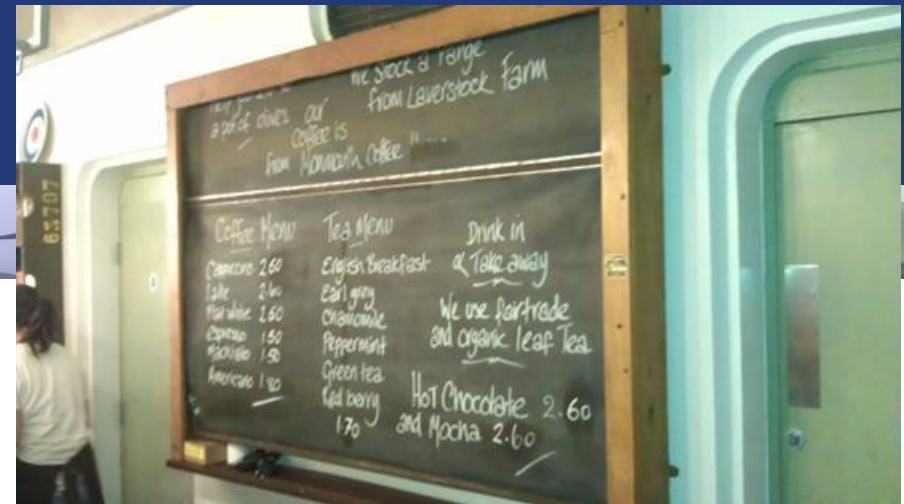 We stock a range
from Laverstock Farm
a pot of olives
our
coffee is
from Monmouth Coffee
65707
Coffee Menu
Cappuccino 2.60
Latte 2.60
Flat white 2.60
espresso 1.50
Macchiato 1.50
Americano 1.80
Tea Menu
English Breakfast
Earl grey
Chamomile
Peppermint
Green tea
Red barry
1.70
Drink in
& Take away
We use fairtrade
and organic leaf Tea
Hot Chocolate 2.60
and Mocha 2.60